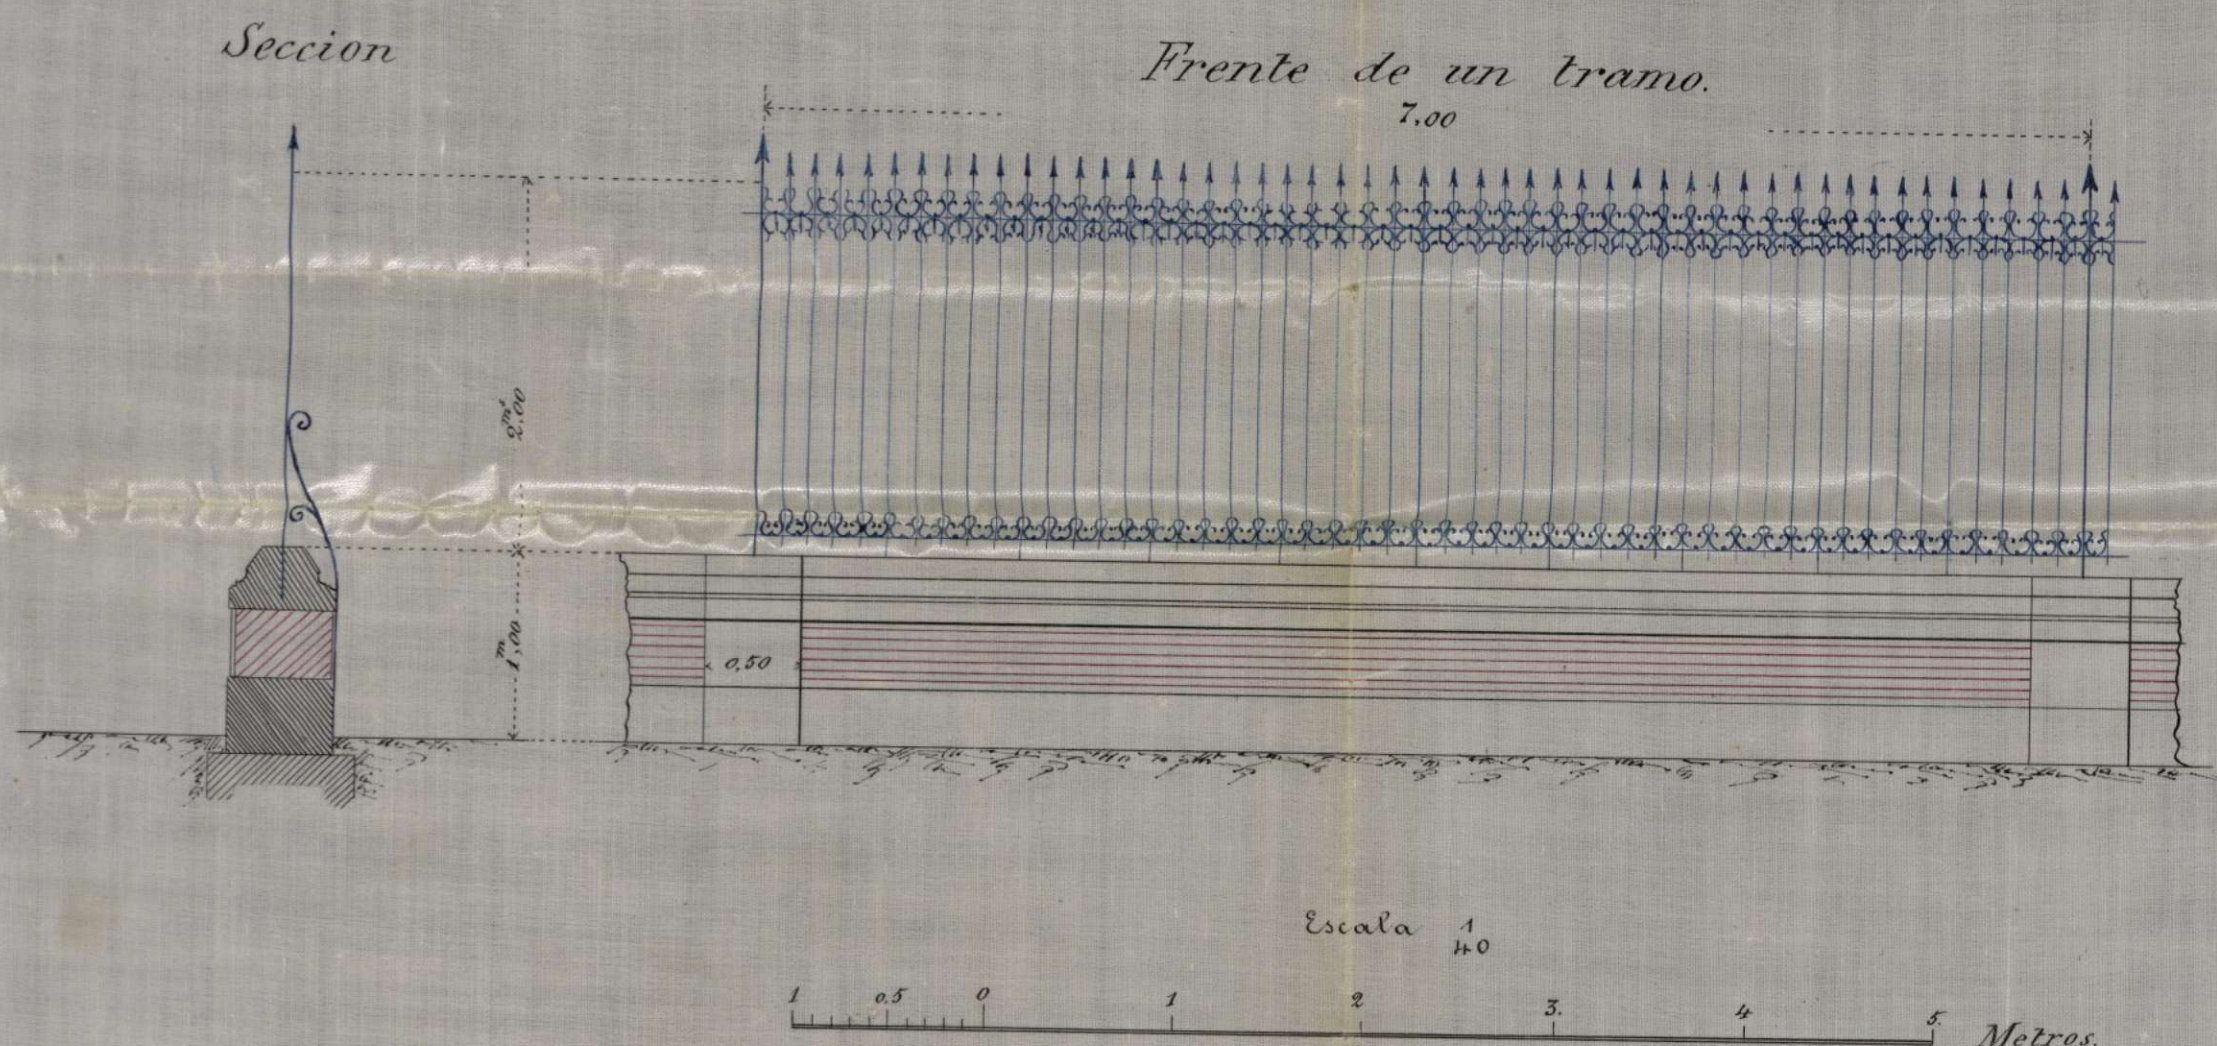 Seccion
Frente de un tramo.
7,00
2,00 ms
1,00 m
0,50
Escala 1/40
1 0.5 0 1 2 3. 4 5. Metros.